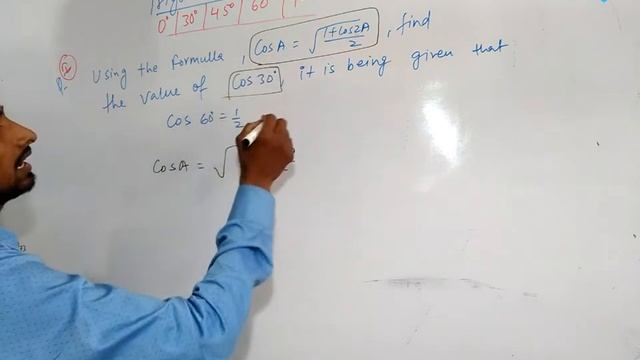 0° 30° 45° 60°
Q. Using the formula, cos A = √((1+cos2A)/2), find
the value of cos 30°, it is being given that
cos 60° = 1/2
cos A = √